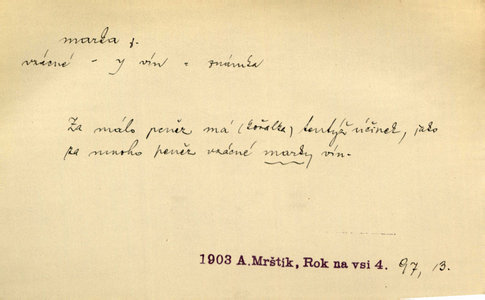 marka f.
vzácné - y vín = známka
Za málo peněz má (kořalka) tentýž účinek, jako
za mnoho peněz vzácné marky vín.
1903 A.Mrštík, Rok na vsi 4. 97, 13.